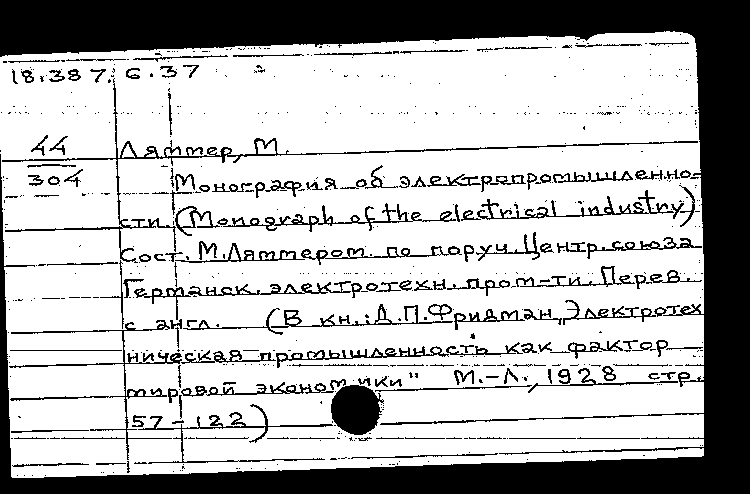 18.387. 6.37
44
304
Ляттер, М.
Монография об электропромышленно-
сти. (Monograph of the electrical industry)
Сост. М. Ляттером. по поруч. Центр. союза
Германск. электротехн. пром-ти. Перев.
с англ. (В кн.: Д.П. Фридман „Электротех
ническая промышленность как фактор
мировой экономики" М.-Л., 1928 стр.
57-122)